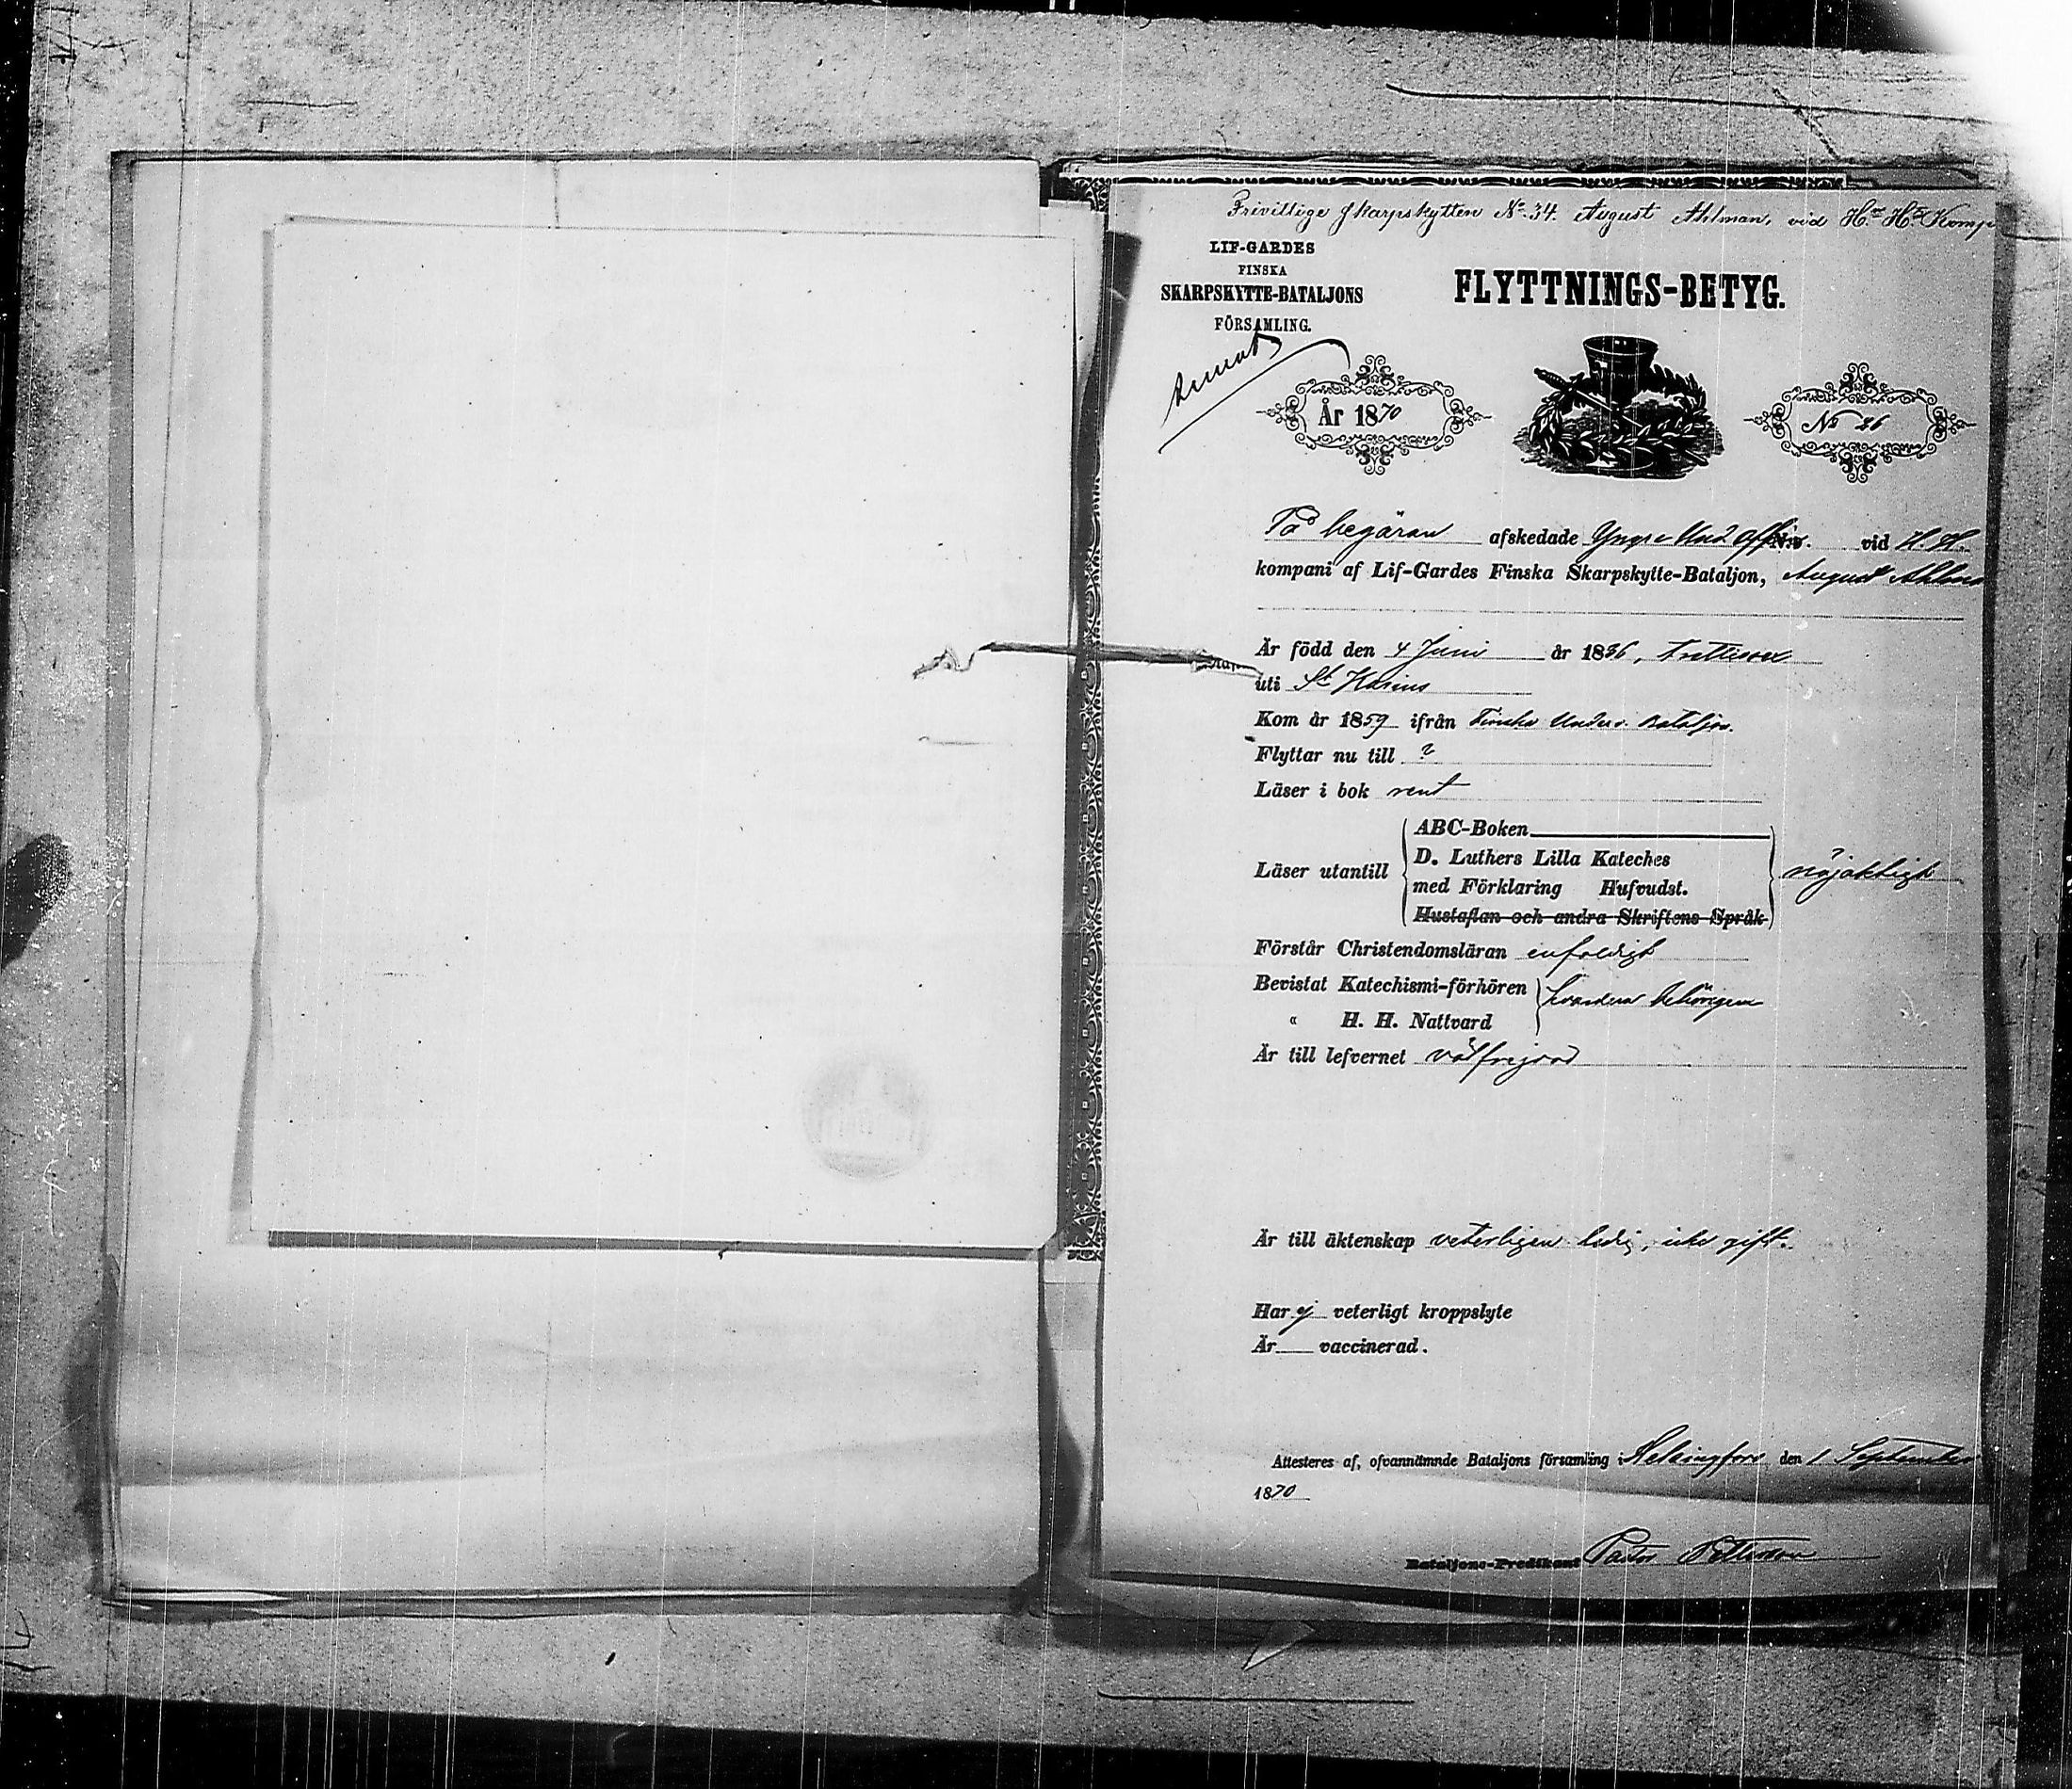 Frivillige Skarpskytten No. 34. August Ahlman, vid H.s H.s Komp
LIF-GARDES
FINSKA
SKARPSKYTTE-BATALJONS
FÖRSAMLING.
FLYTTNINGS-BETYG.
År 1870
No 26
På begäran afskedade Yngre Und Offic. vid H. H.
kompani af Lif-Gardes Finska Skarpskytte-Bataljon, August Ahlma
Är född den 4 Juni år 1836,
uti St Karins
Kom år 1859 ifrån Finska Underv. Bataljon.
Flyttar nu till ?
Läser i bok rent
Läser utantill
ABC-Boken
D. Luthers Lilla Kateches
med Förklaring Hufvudst.
Hustaflan och andra Skriftens Språk
nöjaktigt
Förstår Christendomsläran enfaldigt
Bevistat Katechismi-förhören
« H. H. Nattvard
hvardera behörigen
Är till lefvernet välfrejdad
Är till äktenskap veterligen ledig, icke gift.
Har ej veterligt kroppslyte
Är vaccinerad.
Attesteras af, ofvannämnde Bataljons församling i Helsingfors den 1 September
1870
Bataljons-Predikant